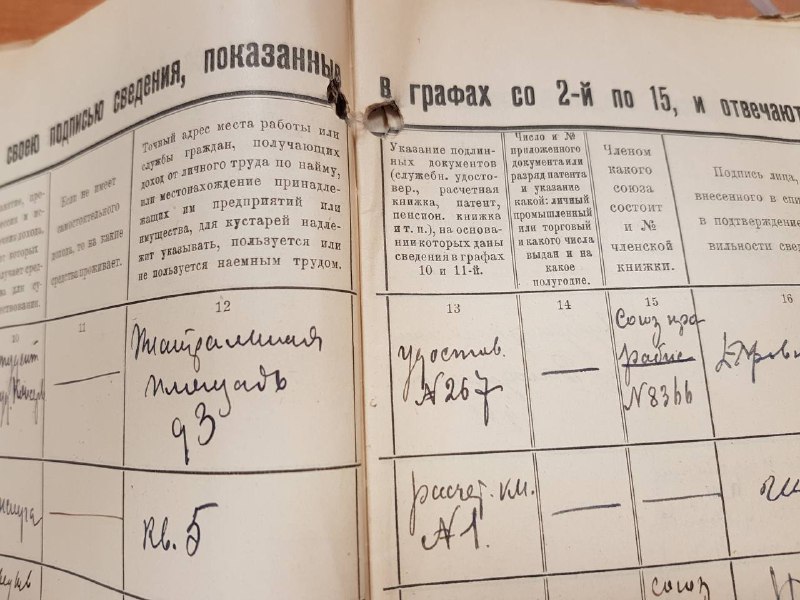 своею подписью сведения, показанные в графах со 2-й по 15, и отвечают
Если не имеет
самостоятельного
дохода, то на какие
средства проживает.
Точный адрес места работы или
службы граждан, получающих
доход от личного труда по найму,
или местонахождение принадле-
жащих им предприятий или
имущества, для кустарей надле-
жит указывать, пользуется или
не пользуется наемным трудом.
Указание подлин-
ных документов
(служебн. удосто-
вер., расчетная
книжка, патент,
пенсион. книжка
и т. п.), на основа-
нии которых даны
сведения в графах
10 и 11-й.
Число и №
приложенного
документа или
разряд патента
и указание
какой: личный
промышленный
или торговый
и какого числа
выдан и на
какое
полугодие.
Членом
какого
союза
состоит
и №
членской
книжки.
Подпись лица,
внесенного в
в подтверждение
10 11 12 13 14 15 16
Театральная
площадь
93
удостов.
№267
Союз
рабис
№8366
кв. 5
расчет. кн.
№1.
союз